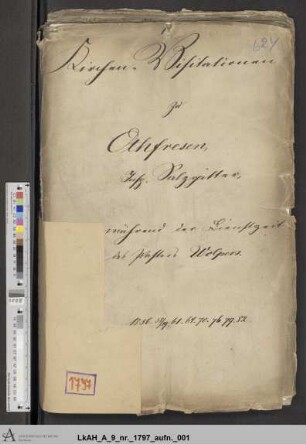 624
Kirchen-Visitationen
zu
Othfresen,
Insp. Salzgitter,
während der Dienstzeit
des Pastors Wolpers.
1797
LkAH_A_9_nr._1797_aufn._001